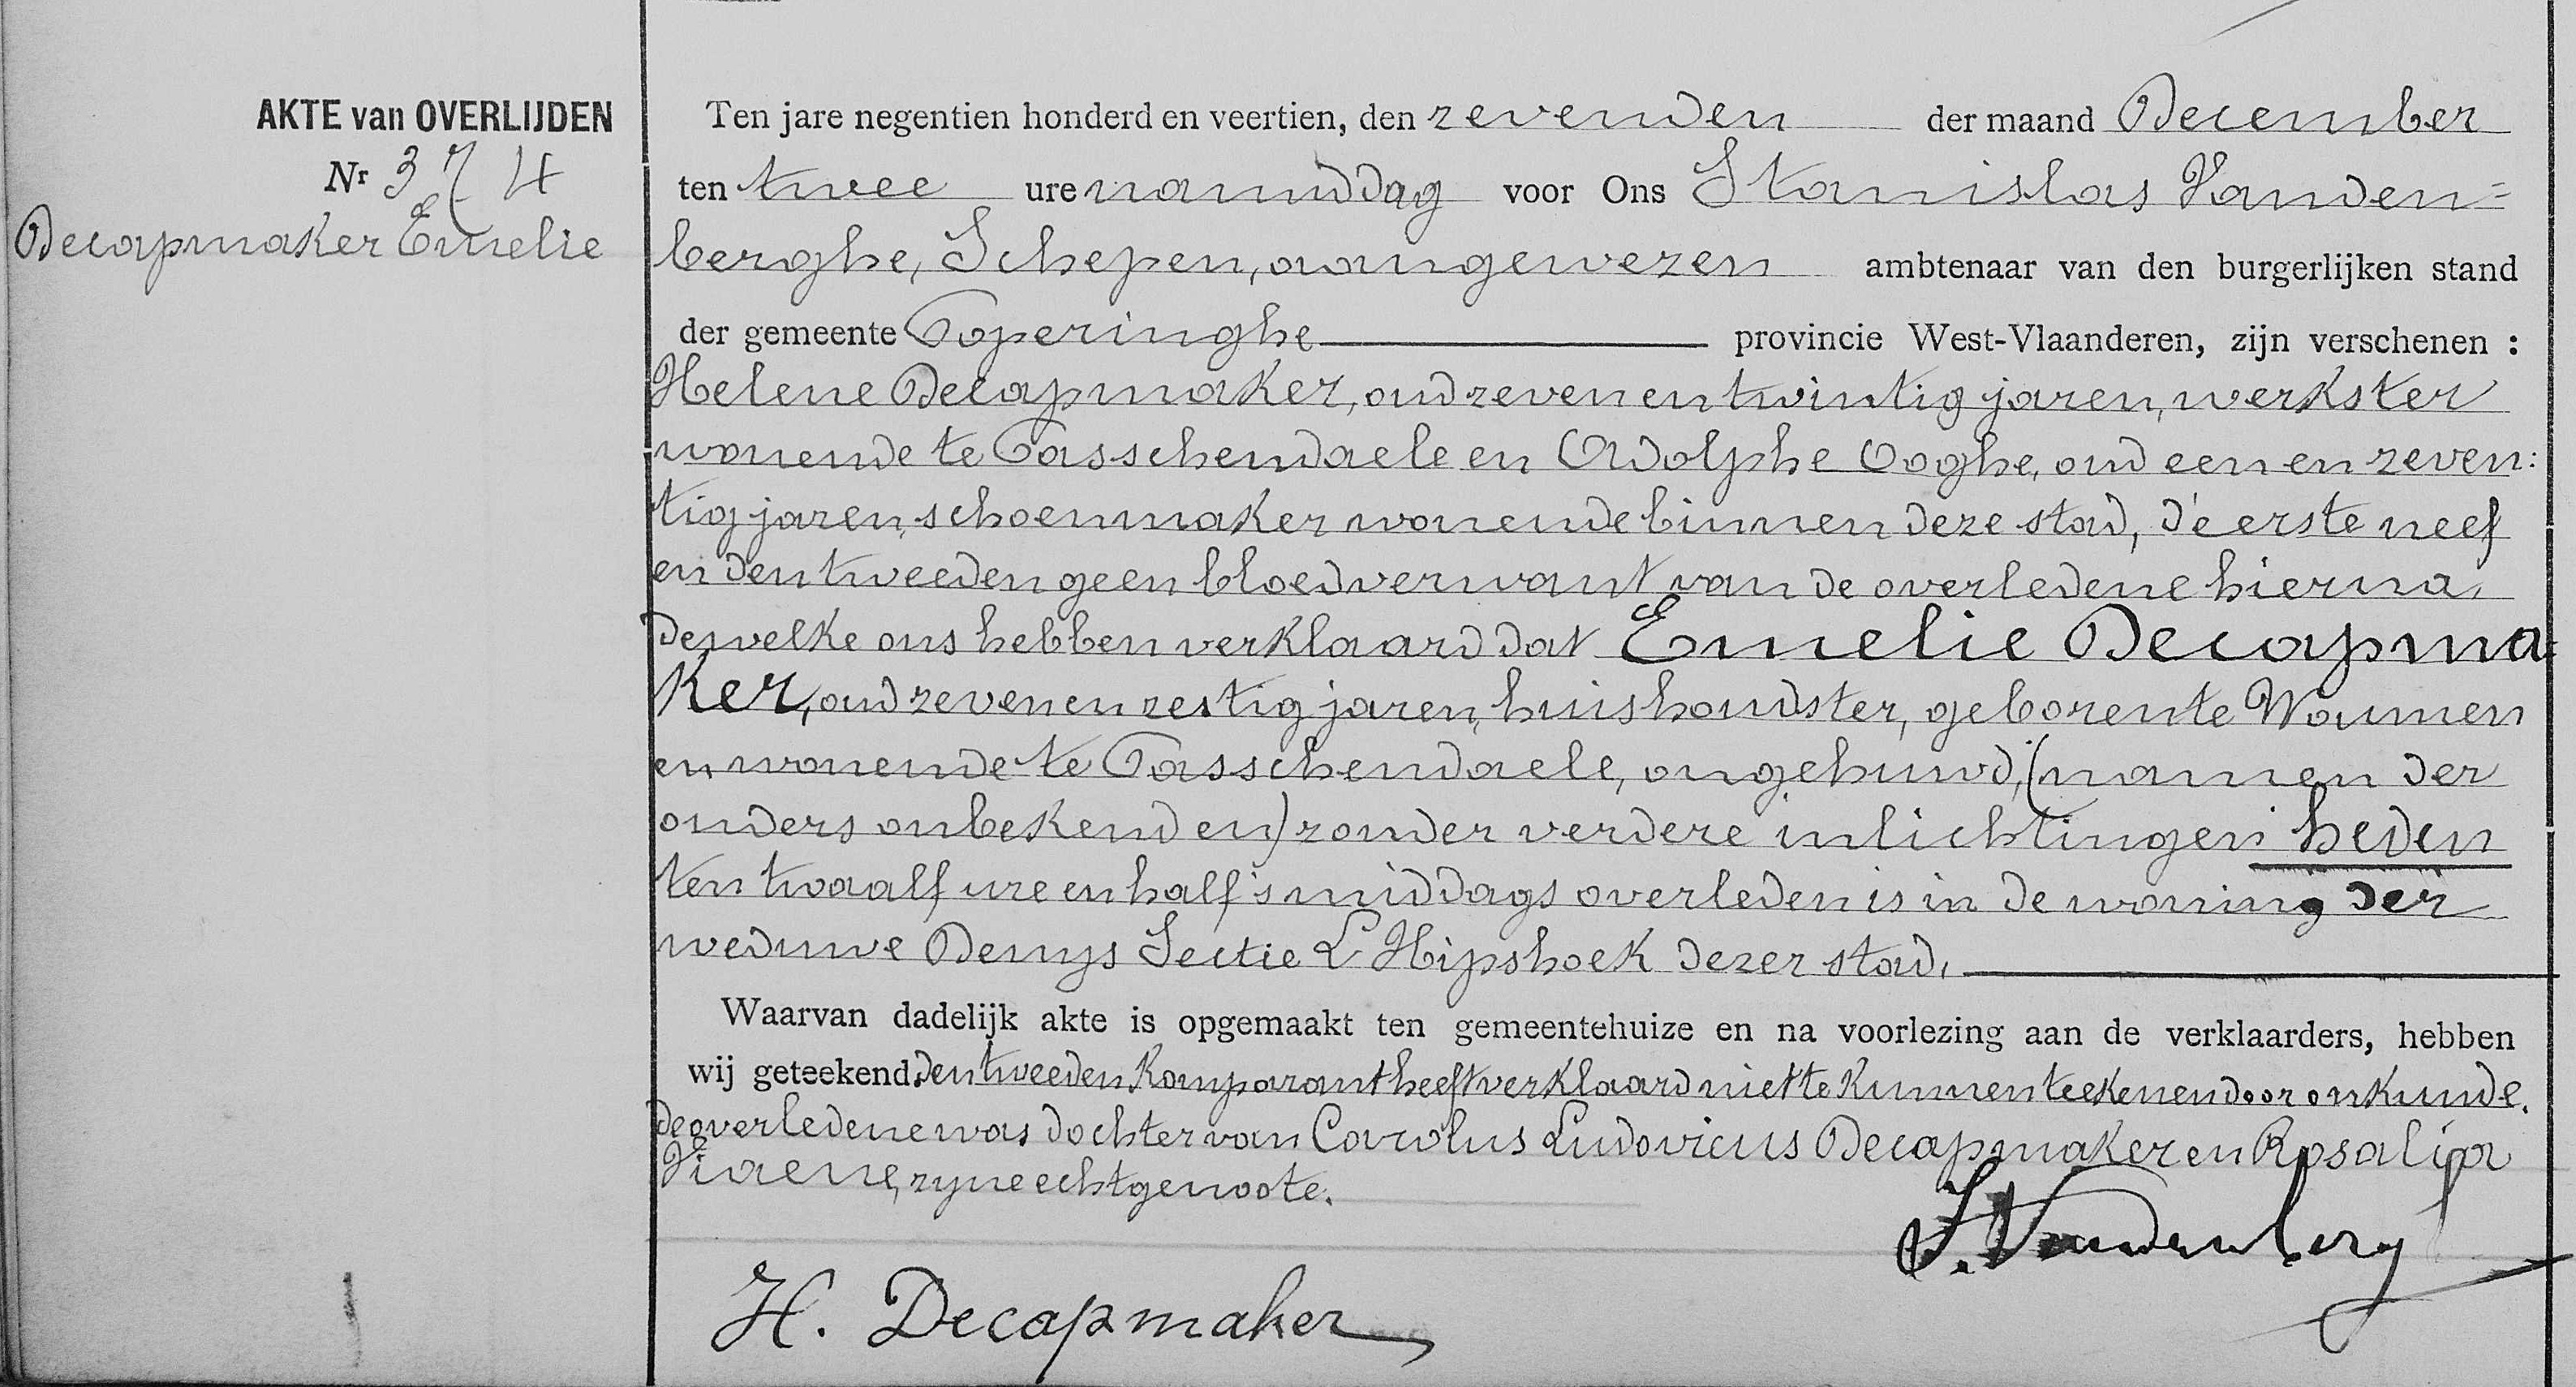 AKTE van OVERLIJDEN
Nr 374
Decapmaker Emelie
Ten jare negentien honderd en veertien, den zevenden der maand December
ten twee ure namiddag voor Ons Stanislas Vanden=
berghe, Schepen, aangewezen ambtenaar van den burgerlijken stand
der gemeente Poperinghe provincie West-Vlaanderen, zijn verschenen :
Helene Decapmaker, oud zeven en twintig jaren, werkster
wonende te Passchendaele en Adolphe Ooghe, oud een en zeven:
tig jaren, schoenmaker wonende binnen deze stad, d'eerste neef
en den tweeden geen bloedverwant van de overledene hierna,
dewelke ons hebben verklaard dat Emelie Decapma=
ker, oud zeven en zestig jaren, huishoudster, geboren te Woumen
en wonende te Passchendaele, ongehuwd, (namen der
ouders onbekend en) zonder verdere inlichtingen heden
ten twaalf ure en half 's middags overleden is in de woning der
weduwe Denys Sectie L Hipshoek dezer stad.
Waarvan dadelijk akte is opgemaakt ten gemeentehuize en na voorlezing aan de verklaarders, hebben
wij geteekend, den tweeden komparant heeft verklaard niet te kunnen teekenen door onkunde.
de overledene was dochter van Carolus Ludovicus Decapmaker en Rosalia
Viaene, zyne echtgenoote.
S. Vandenberg
H. Decapmaker